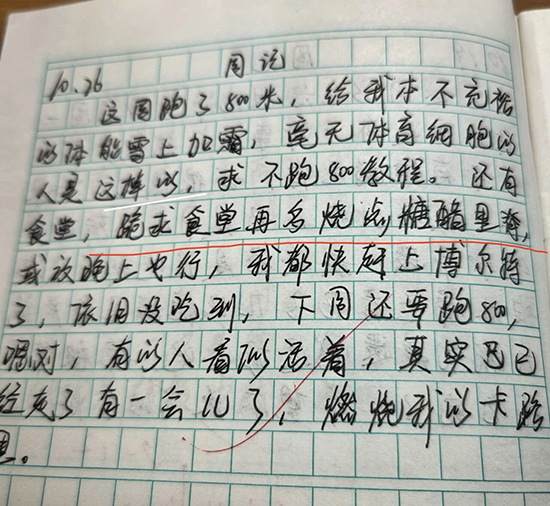 10.26 周记
这周跑了800米，给我本不充裕
的体能雪上加霜，毫无体育细胞的
人是这样的，求不跑800教程。还有
食堂，跪求食堂再多烧点糖醋里脊，
或放晚上也行，我都快赶上博尔特
了，依旧没吃到，下周还要跑800，
啊对，有的人看似活着，其实已已
经死了有一会儿了，燃烧我的卡路
里。